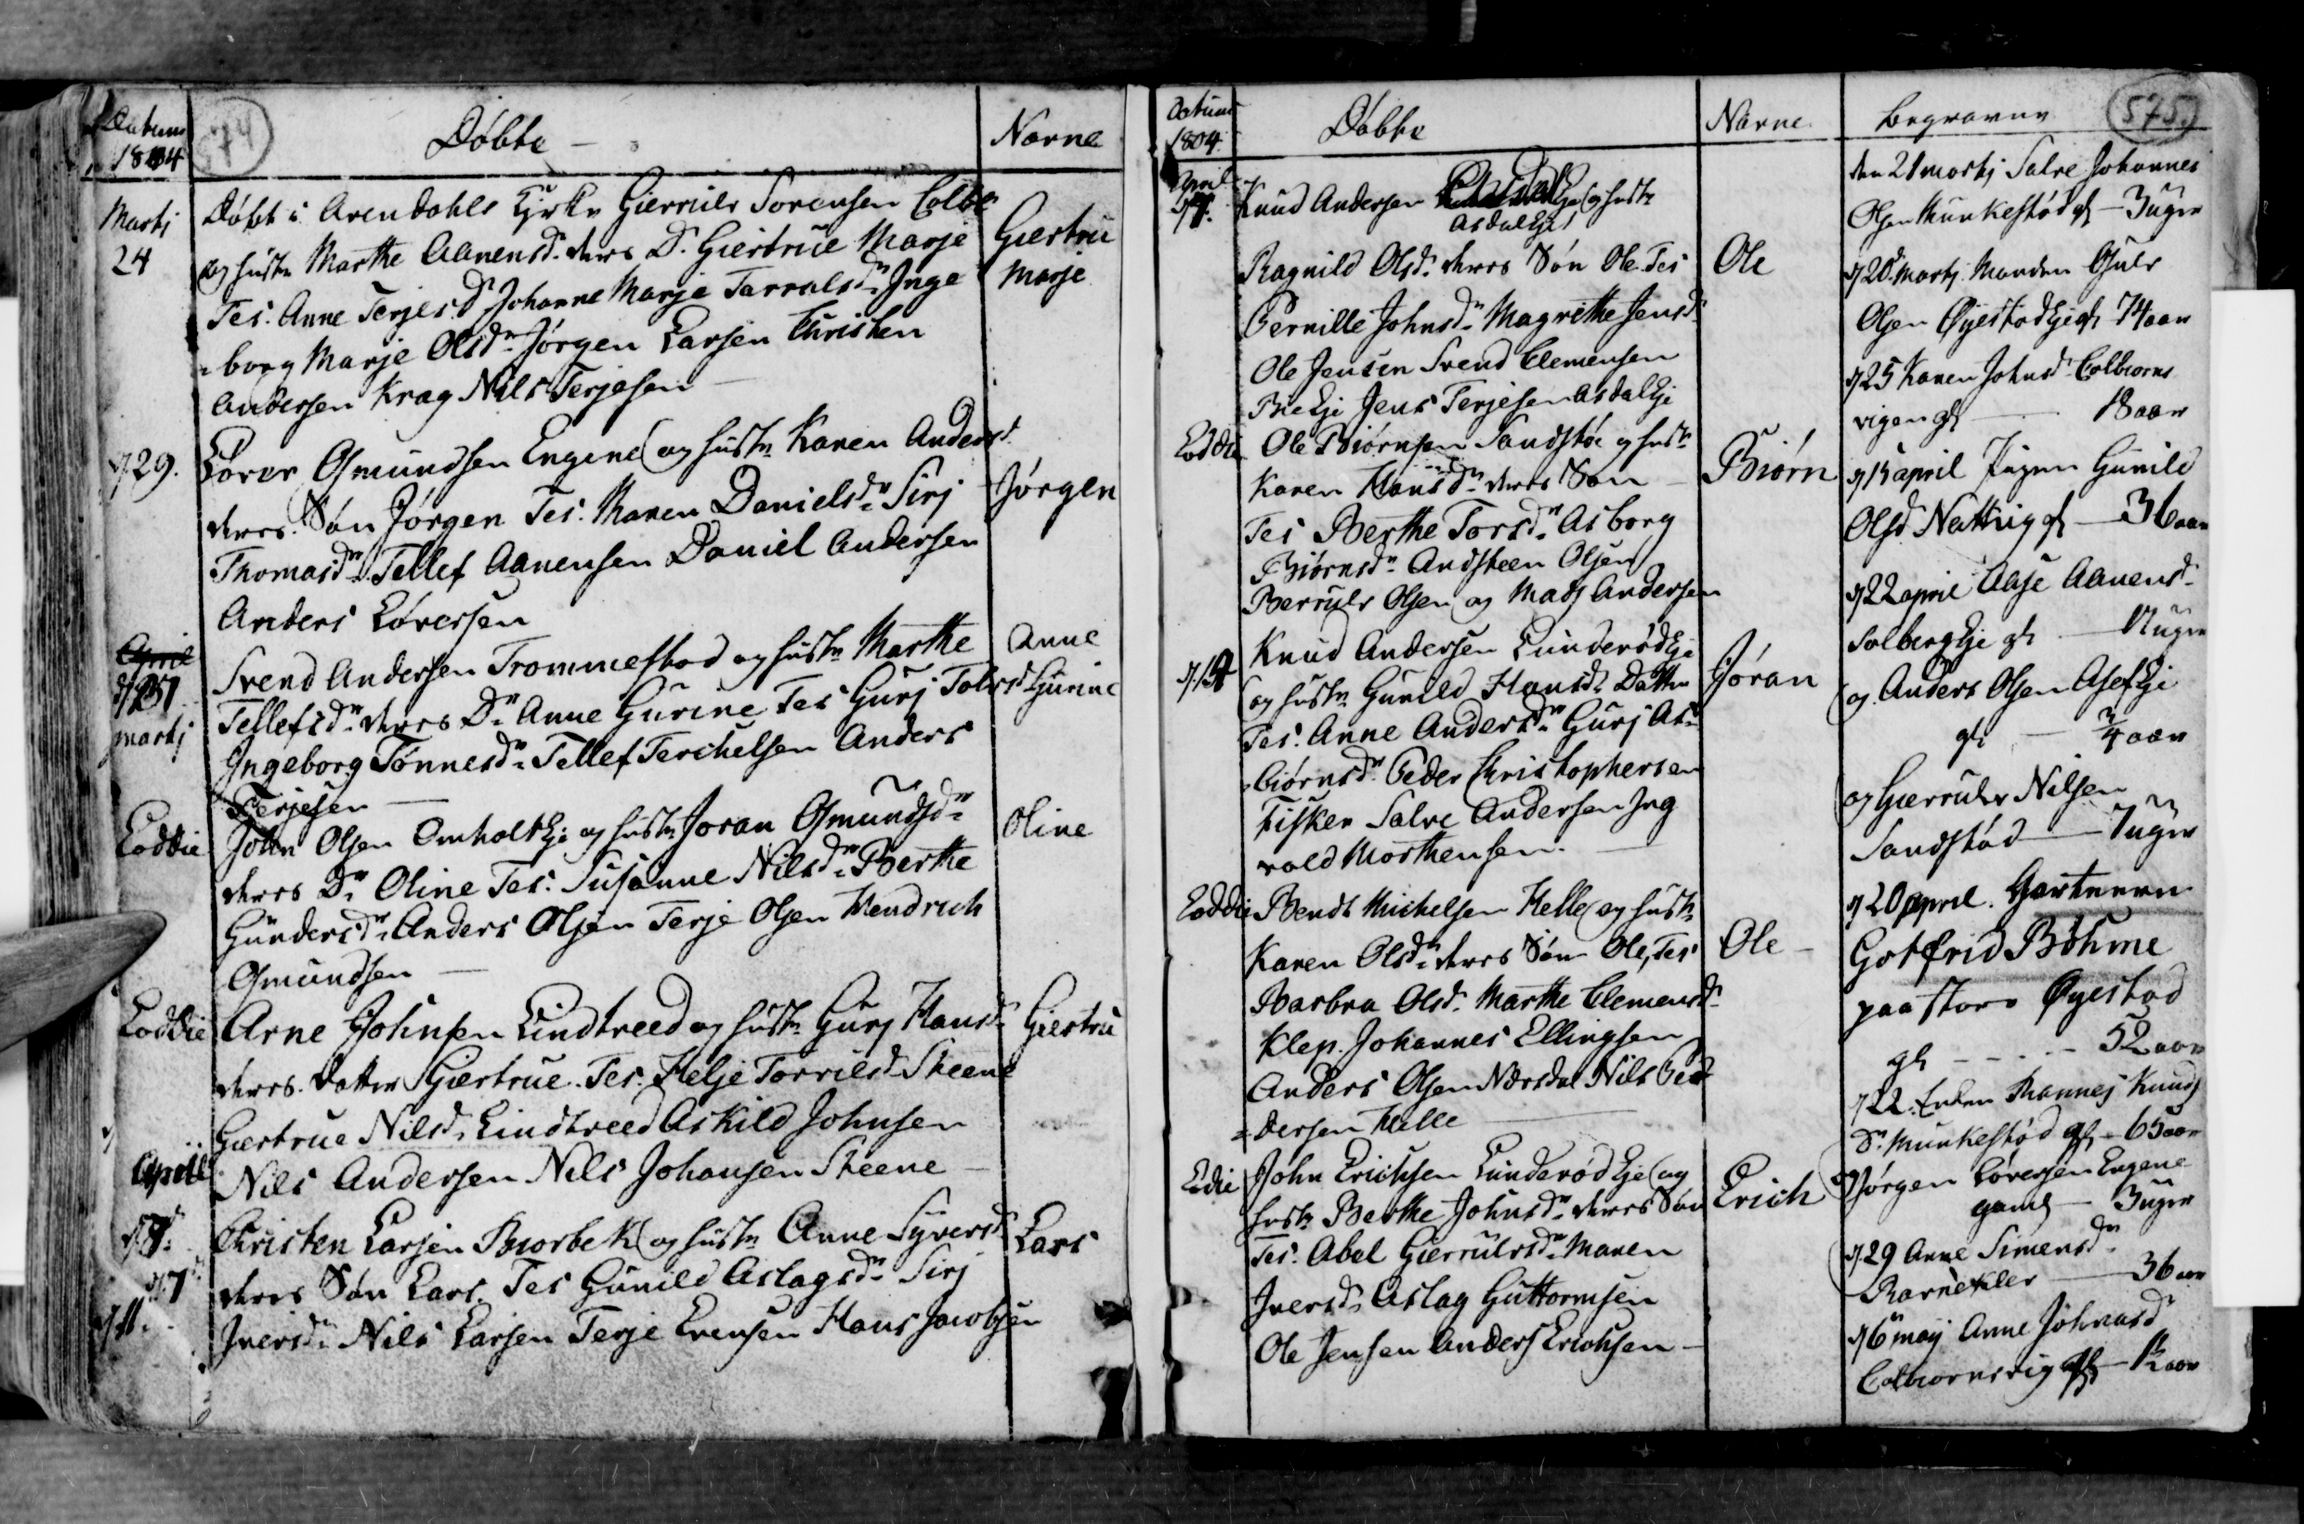 Datum
1804
574
Døbte
Navne
Martj
24
Døbt i Arendahls Kirke Gierruls Sørensen Colbr
og hustr Marthe Aanensd. deres Dr Giertrue Marje
Tes. Anne Terjesdr Johanne Marje Tarralsdr Inge
borg Marje Olsdr Jørgen Larsen Christen
Andersen Krag Nils Terjesen
Giertru
Marje
d 29.
Lover Osmundsen Engene og hustr Karen Andersd
deres Søn Jørgen Tes. Maren Danielsdr Sirj
Thomasdr Tellef Aanensen Daniel Andersen
Anders Løversen
Jørgen
April
d 31
martj
Svend Andersen Trommestad og hustr Marthe
Tellefsdr deres Dr Anne Gurine Tes Gurj Tolvsd
Ingeborg Tønnesdr Tellef Terchelsen Anders
Terjesen
Anne
Gurine
Eoddie
John Olsen Omholt Eje og hustr Joran Osmundsdr
deres Dr Oline Tes. Susanne Nilsdr Berthe
Gundersdr Anders Olsen Terje Olsen Hendrich
Osmundsen
Oline
Eoddie
Arne Johnsen Lindtveed og hustr Gurj Hansdr
deres Datter Giertrue. Tes. Helje Torrilsd Steene
Giertrue Nilsd. Lindtveed Askild Johnsen
Nils Andersen Nils Johansen Steene
Giertru
April
d 7
d 11.
Christen Larsen Biorbek og hustr Anne Syversd
deres Søn Lars. Tes Gunild Aslagsdr Sirj
Iversdr Nils Larsen Terje Evensen Hans Jacobsen
Lars
Datum
1804
Døbte
Navne
Begravne
575
April
d 7.
Knud Andersen og hustr
Asdal Eje
Ragnild Olsdr deres Søn Ole. Tes
Pernille Johnsdr Magrethe Jensd
Ole Jensen Svend Clemensen
Bie Eje Jens Terjesen Asdal Eje
Ole
Eoddie
Ole Biørnsen Sandstøe og hustr
Karen Hansdr deres Søn
Tes Berthe Torsdr Asborg
Biørnsdr Andsteen Olsen
Berruls Olsen og Mads Andersen
Biørn
d. 14
Knud Andersen Lunderød Eje
og hustr Gunild Hansdr Datter
Tes. Anne Andersdr Gurj As
biørnsdr Peder Christophersen
Fisker Salve Andersen Ing
vald Morthensen.
Jøran
Eoddie
Bendt Michelsen Helle og hustr
Karen Olsdr deres Søn Ole, Tes
Barbra Olsdr Marthe Clemensd
Klep. Johannes Ellingsen
Anders Olsen Næsdal Nils Ped
dersen Helle
Ole
Edie
John Erichsen Lunderød Eje og
hustr Berthe Johnsdr deres Søn
Tes. Abel Gierrulsdr Maren
Iversdr Aslag Guttormsen
Ole Jensen Anders Erichsen
Erich
den 21 martj Salve Johannes
Olsen Munkestød gl 3 uger
d 20 martj. Manden Giuls
Olsen Øyestad Eje gl 74 aar
d 25 Karen Johnsd Colbiorns
vigen gl 18 aar
d 15 april Pigen Gunild
Olsd Nattvig gl 36 aar
d 22 april Aase Aanensd
Solberg Eje gl uger
og Anders Olsen Asef Eje
gl 3/4 aar
og Gierruls Nilsen
Sandstød 7 uger
d 20 april. Gartneren
Gotfrid Bøhme
paa store Øyestad
gl 52 aar
d 22. Enken Knuds
Dr Munkestød gl 65 aar
Jørgen Løversen Engene
gaml 3 uger
d 29 Anne Simensdr
Rannekler 36 aar
d 6 maij Anne Johnsd
Colbiornsvig gl 12 aar